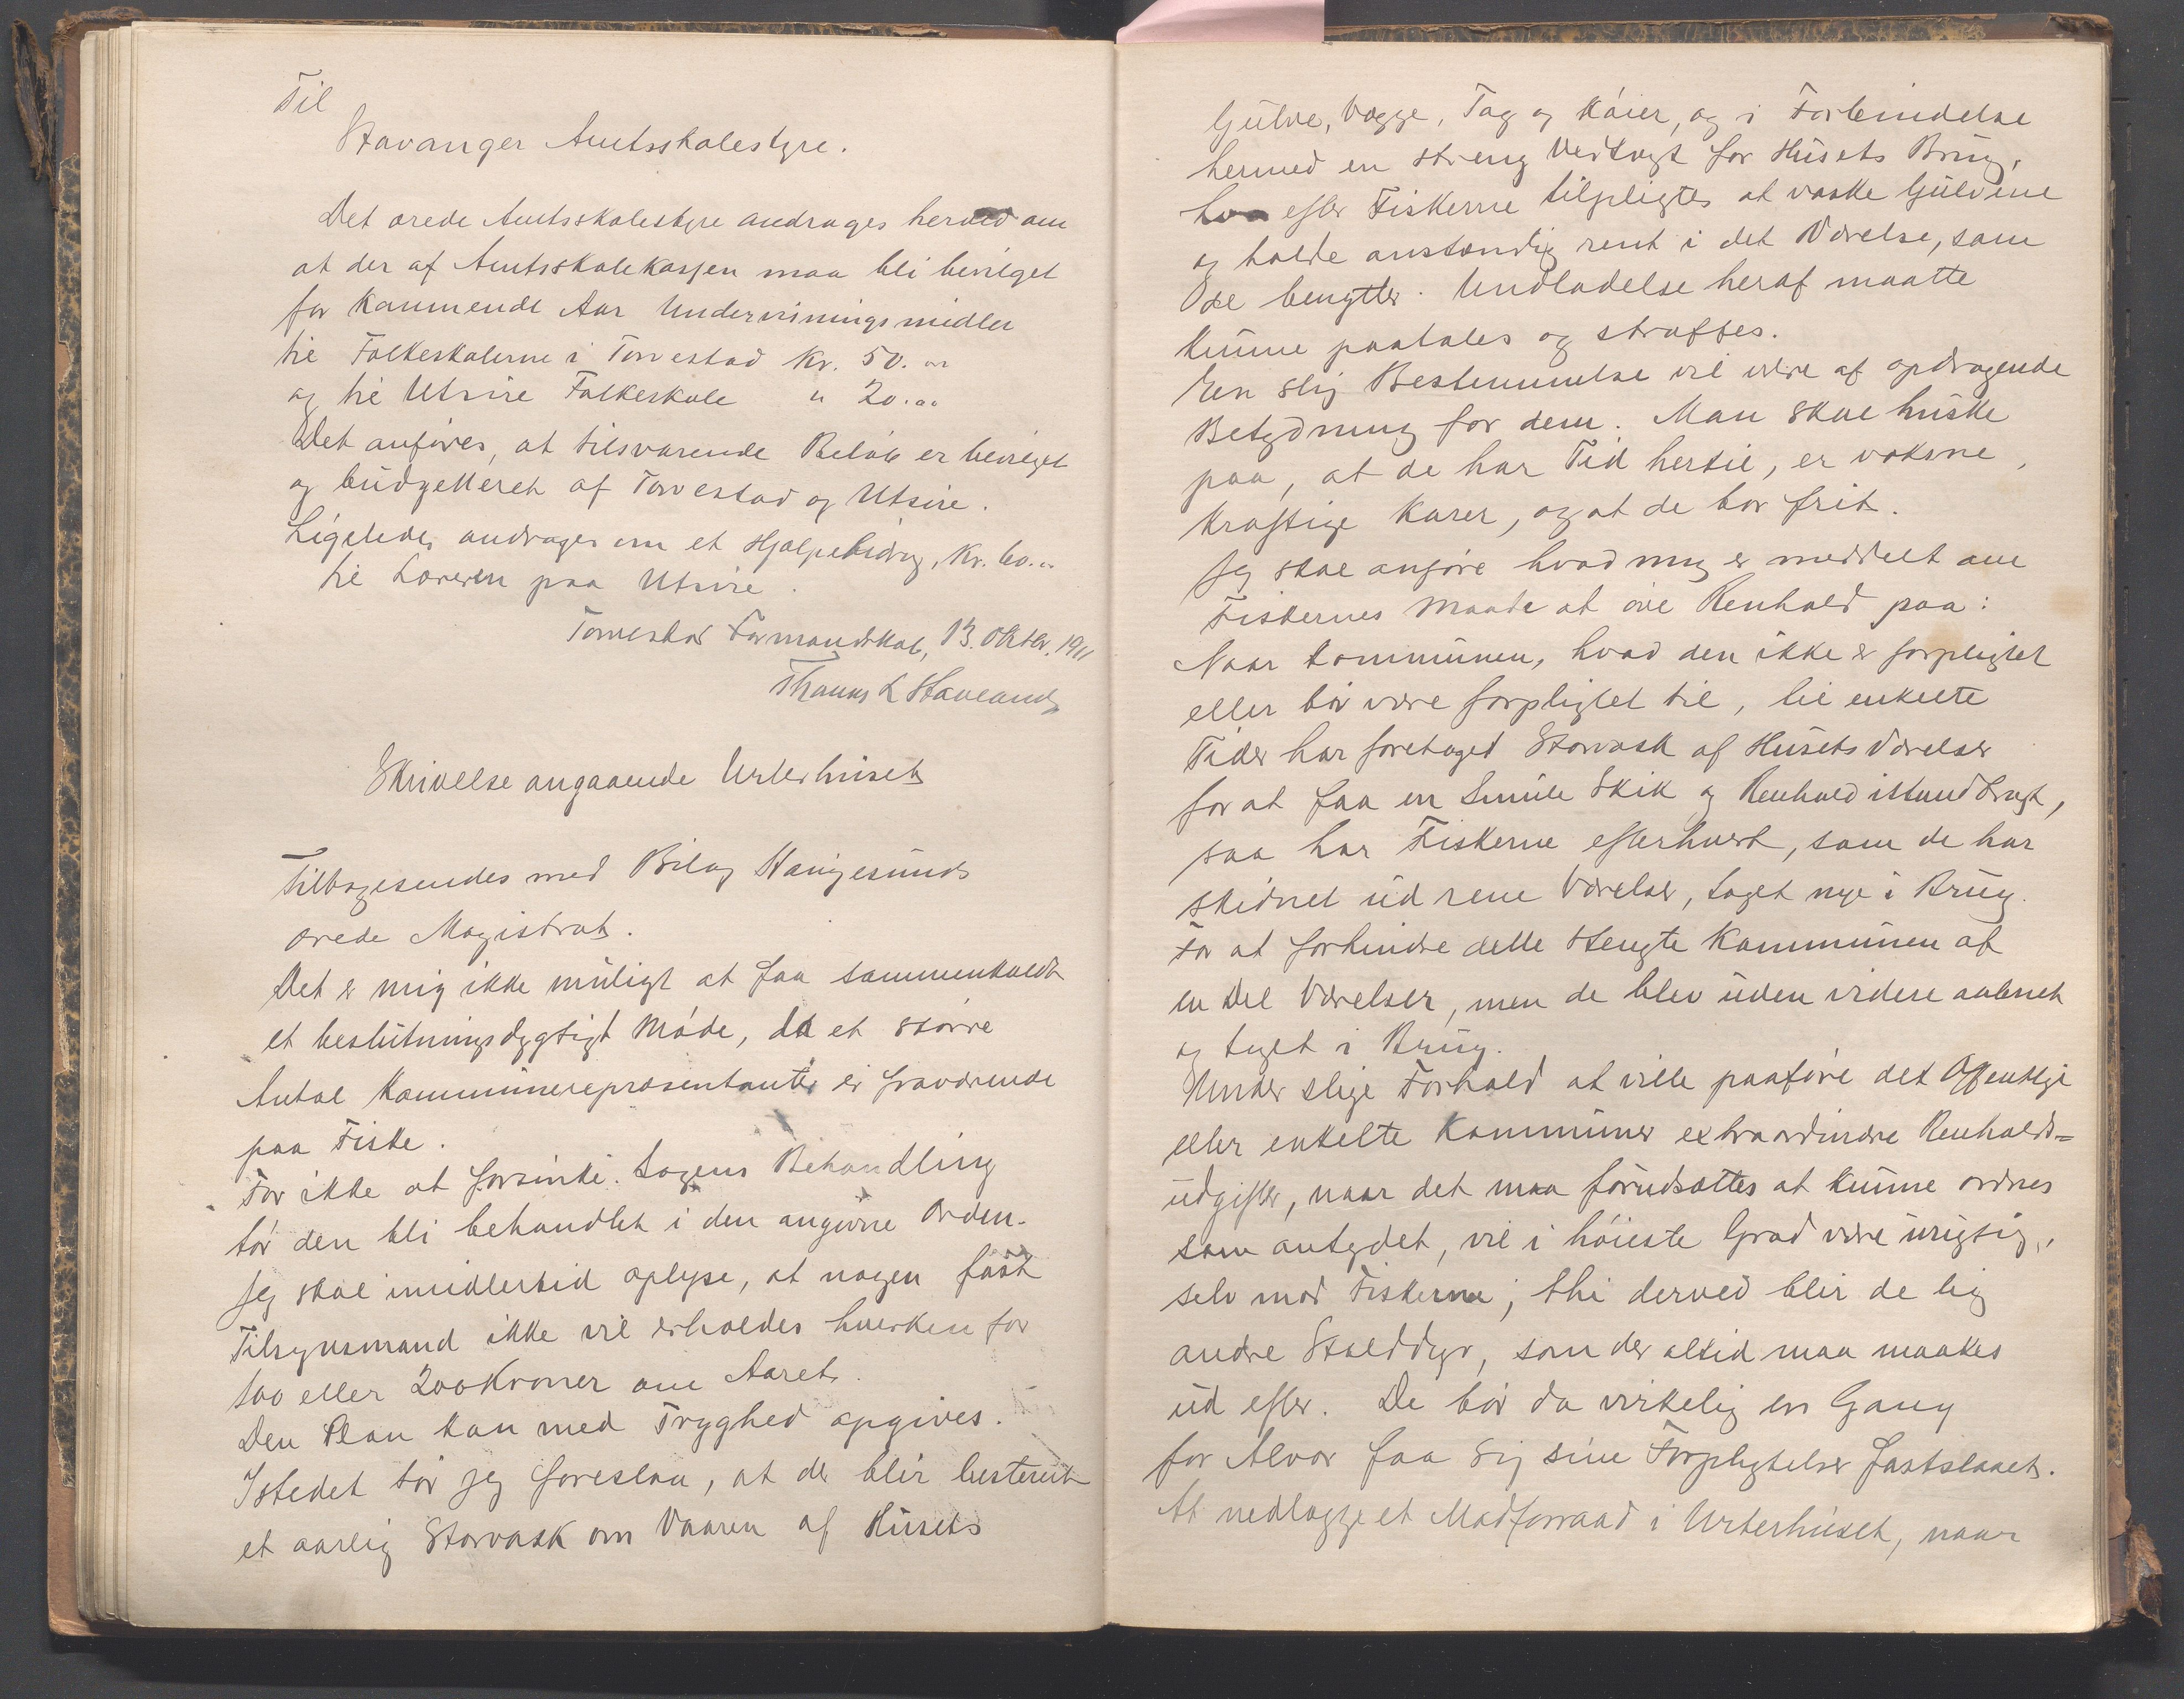 Til
Stavanger Amtsskolestyre.
Det ærede Amtsskolestyre andrages herved om
at der af Amtsskolekassen maa bli bevilget
for kommende Aar Undervisningsmidler
til Folkeskolerne i Torvestad Kr. 50.00
og til Utsire Folkeskole " 20.00
Det anføres, at tilsvarende Beløb er bevilget
og budgetteret af Torvestad og Utsire.
Ligeledes andrages om et Hjælpebidrag, Kr. 60.00
til Læreren paa Utsire.
Torvestad Formandskab, 13. Oktbr. 1911
Thomas L Staveland
Skrivelse angaaende Urterhuset
Tilbagesendes med Bilag Haugesunds
ærede Magistrat.
Det er mig ikke muligt at faa sammenkaldt
et beslutningsdygtigt Møde, da et større
Antal Kommunerepræsentanter er fraværende
paa Fiske.
For ikke at forsinke Sagens Behandling
bør den bli behandlet i den angivne Orden.
Jeg skal imidlertid oplyse, at nogen fast
Tilsynsmand ikke vil erholdes hverken for
100 eller 200 Kroner om Aaret.
Den Plan kan med Tryghed opgives.
Istedet tør jeg foreslaa, at der blir bestemt
et aarlig Storvask om Vaaren af Husets
Gulve, Vægge, Tag og Køier, og i Forbindelse
hermed en streng Vedtægt for Husets Brug,
hvorefter Fiskerne tilpligtes at vaske Gulvene
og holde anstændig rent i det Værelse, som
De benytter. Undladelse heraf maatte
kunne paatales og straffes.
En slig Bestemmelse vil være af opdragende
Betydning for dem. Man skal huske
paa, at de har Tid hertil, er voksne,
kraftige Karer, og at de bor frit.
Jeg skal anføre hvad mig er meddelt om
Fiskernes Maade at øve Renhold paa:
Naar Kommunen, hvad den ikke er forpligtet
eller bør være forpligtet til, til enkelte
Tider har foretaget Storvask af Husets Værelser
for at faa en Smule Skik og Renhold istandbragt,
saa har Fiskerne efterhvert, som de har
skidnet ud rene Værelser, taget nye i Brug.
For at forhindre dette stengte Kommunen af
en Del Værelser, men de blev uden videre aabnet
og taget i Brug.
Under slige Forhold at ville paaføre det Offentlige
eller enkelte Kommuner extraordinære Renholds=
udgifter, naar det maa forudsættes at kunne ordnes
som antydet, vil i høieste Grad være urigtig,
selv mod Fiskerne; thi derved blir de lig
andre Stalddyr, som der altid maa maakes
ud efter. De bør da virkelig en Gang
for Alvor faa sig sine Forpligtelser fastslaaet.
At nedlægge et Madforraad i Urterhuset, naar